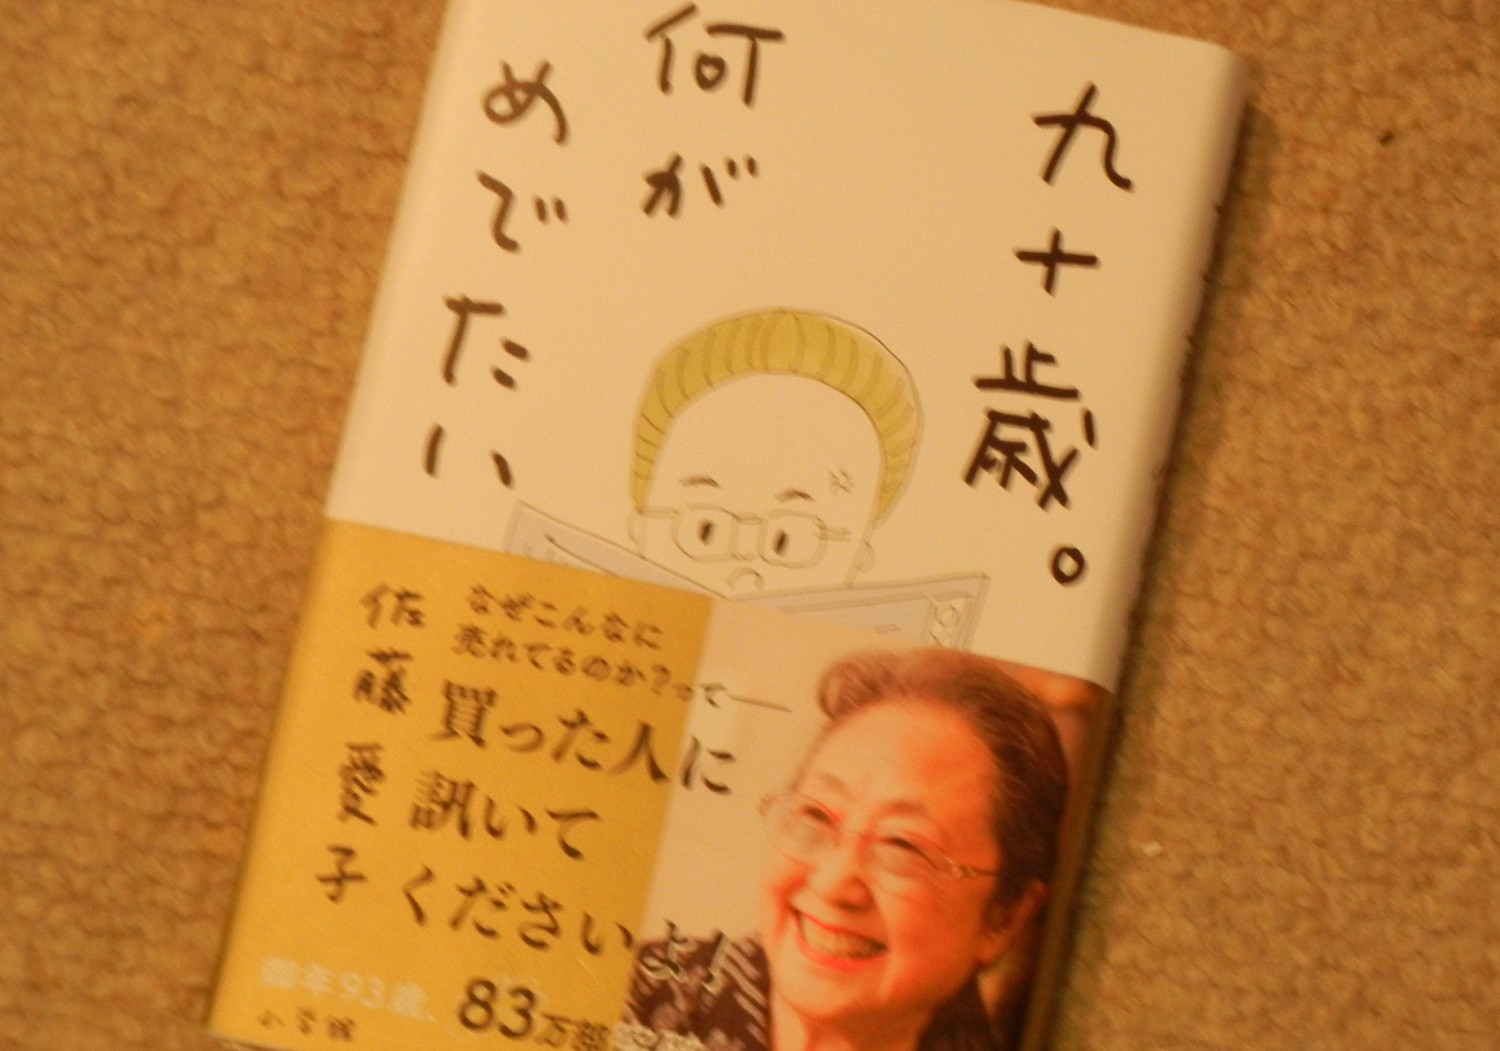 九十歳。
何が
めでたい
佐藤愛子
なぜこんなに
売れてるのか？って──
買った人に
訊いて
くださいよ！
御年93歳、
83万部
小学館